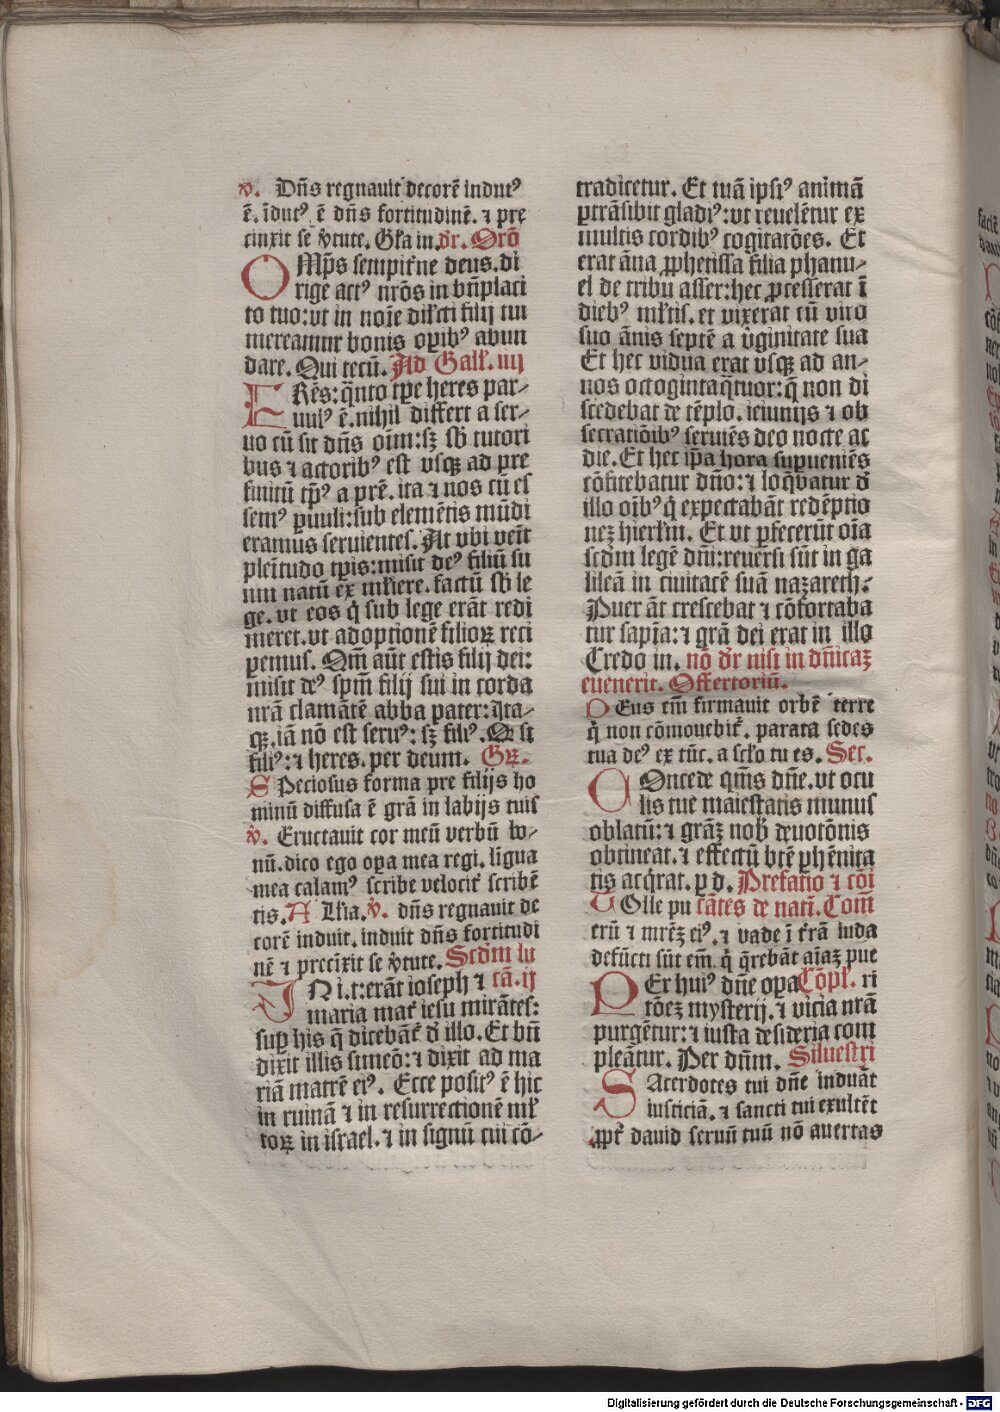 v. Dn̄s regnauit decorē indutꝰ
ē. īdutꝰ ē dn̄s fortitudinē. ⁊ pre
cinxit se v̓tute. Gl̓a in. dr̄. Orō
OMp̄s sempit̓ne deus. di
rige actꝰ nr̄os in bn̄placi
to tuo: vt in noīe dil̓cti filij tui
mereamur bonis oꝑibꝰ abun
dare. Qui tecū. Ad Gall̓. iiij
FRēs: q̄nto tꝑe heres par-
uulꝰ ē. nihil differt a ser-
uo cū sit dn̄s oīm: sꝫ sb̓ tutori
bus ⁊ actoribꝰ est vsqꝫ ad pre
finitū tp̄ꝰ a prē. ita ⁊ nos cū es
semꝰ ꝑuuli: sub elemētis mūdi
eramus seruientes. At vbi vēit
plēitudo tꝑis: misit deꝰ filiū su
um natū ex ml̓iere. factū sb̓ le
ge. vt eos q̓ sub lege erāt redi
meret. vt adoptionē filioꝝ reci
ꝑemus. Qm̄ aūt estis filij dei:
misit deꝰ spm̄ filij sui in corda
nrā clamātē abba pater: Ita-
qꝫ. iā nō est seruꝰ: sꝫ filiꝰ. Qꝫ si
filiꝰ: ⁊ heres. per deum. Gꝝ.
SPeciosus forma pre filijs ho
minū diffusa ē grā in labijs tuis
v̓. Eructauit cor meū verbū bo-
nū. dico ego oꝑa mea regi. līgua
mea calamꝰ scribe velocit̓ scribē
tis. All̓ia. v̓. dn̄s regnauit de
corē induit. induit dn̄s fortitudi
nē ⁊ precīxit se v̓tute. Scd̓m lu
IN i. t: erāt ioseph ⁊ cā. ij
maria mat̓ iesu mirātes:
suꝑ his q̄ dicebāt̓ d̓ illo. Et bn̄
dixit illis simeō: ⁊ dixit ad ma
riā matrē eiꝰ. Ecce positꝰ ē hic
in ruinā ⁊ in resurrectionē ml̓
toꝝ in israel. ⁊ in signū cui cō-
tradicetur. Et tuā ipsiꝰ animā
ꝑtrāsibit gladiꝰ: vt reuelētur ex
multis cordibꝰ cogitatōes. Et
erat āna ꝓphetissa filia phanu-
el de tribu asser: hec ꝓcesserat ī
diebꝰ ml̓tis. et vixerat cū viro
suo ānis septē a v̓ginitate sua
Et hec vidua erat vsqꝫ ad an-
nos octogintaq̄tuor: q̄ non di
scedebat de tēplo. ieiunijs ⁊ ob
secratiōibꝰ seruiēs deo nocte ac
die. Et hec ip̄a hora suꝑueniēs
cōfitebatur dn̄o: ⁊ loq̄batur d̓
illo oībꝰ q̓ expectabāt redēptio
neꝫ hierl̓m. Et vt ꝑfecerūt oīa
scd̓m legē dn̄i: reuersi sūt in ga
lileā in ciuitatē suā nazareth:
Puer āt crescebat ⁊ cōfortaba
tur sapīa: ⁊ grā dei erat in illo
Credo in. nō dr̄ nisi in dn̄icaꝫ
euenerit. Offertoriū.
DEus em̄ firmauit orbē terre
q̓ non cōmouebit̓. parata sedes
tua deꝰ ex tūc. a scl̓o tu es. Sec.
COncede qm̄s dn̄e. vt ocu
lis tue maiestatis munus
oblatū: ⁊ grāꝫ nob̓ deuotōnis
obtineat. ⁊ effectū btē ꝑhēnita
tis acq̓rat. ꝑ d. Prefatio ⁊ cōi
TOlle pu cātes de nati. Com̄
erū ⁊ mrēꝫ eiꝰ. ⁊ vade ī t̓rā iuda
defūcti sūt em̄. q̓ q̄rebāt aīaꝫ pue
PEr huiꝰ dn̄e oꝑa Cōpl̓. ri
tōeꝫ mysterij. ⁊ vicia nrā
purgētur: ⁊ iusta desideria com
pleātur. Per dn̄m. Siluestri
SAcerdotes tui dn̄e induāt
iusticiā. ⁊ sancti tui exultēt
ꝓpt̓ dauid seruū tuū nō auertas
Digitalisierung gefördert durch die Deutsche Forschungsgemeinschaft - DFG